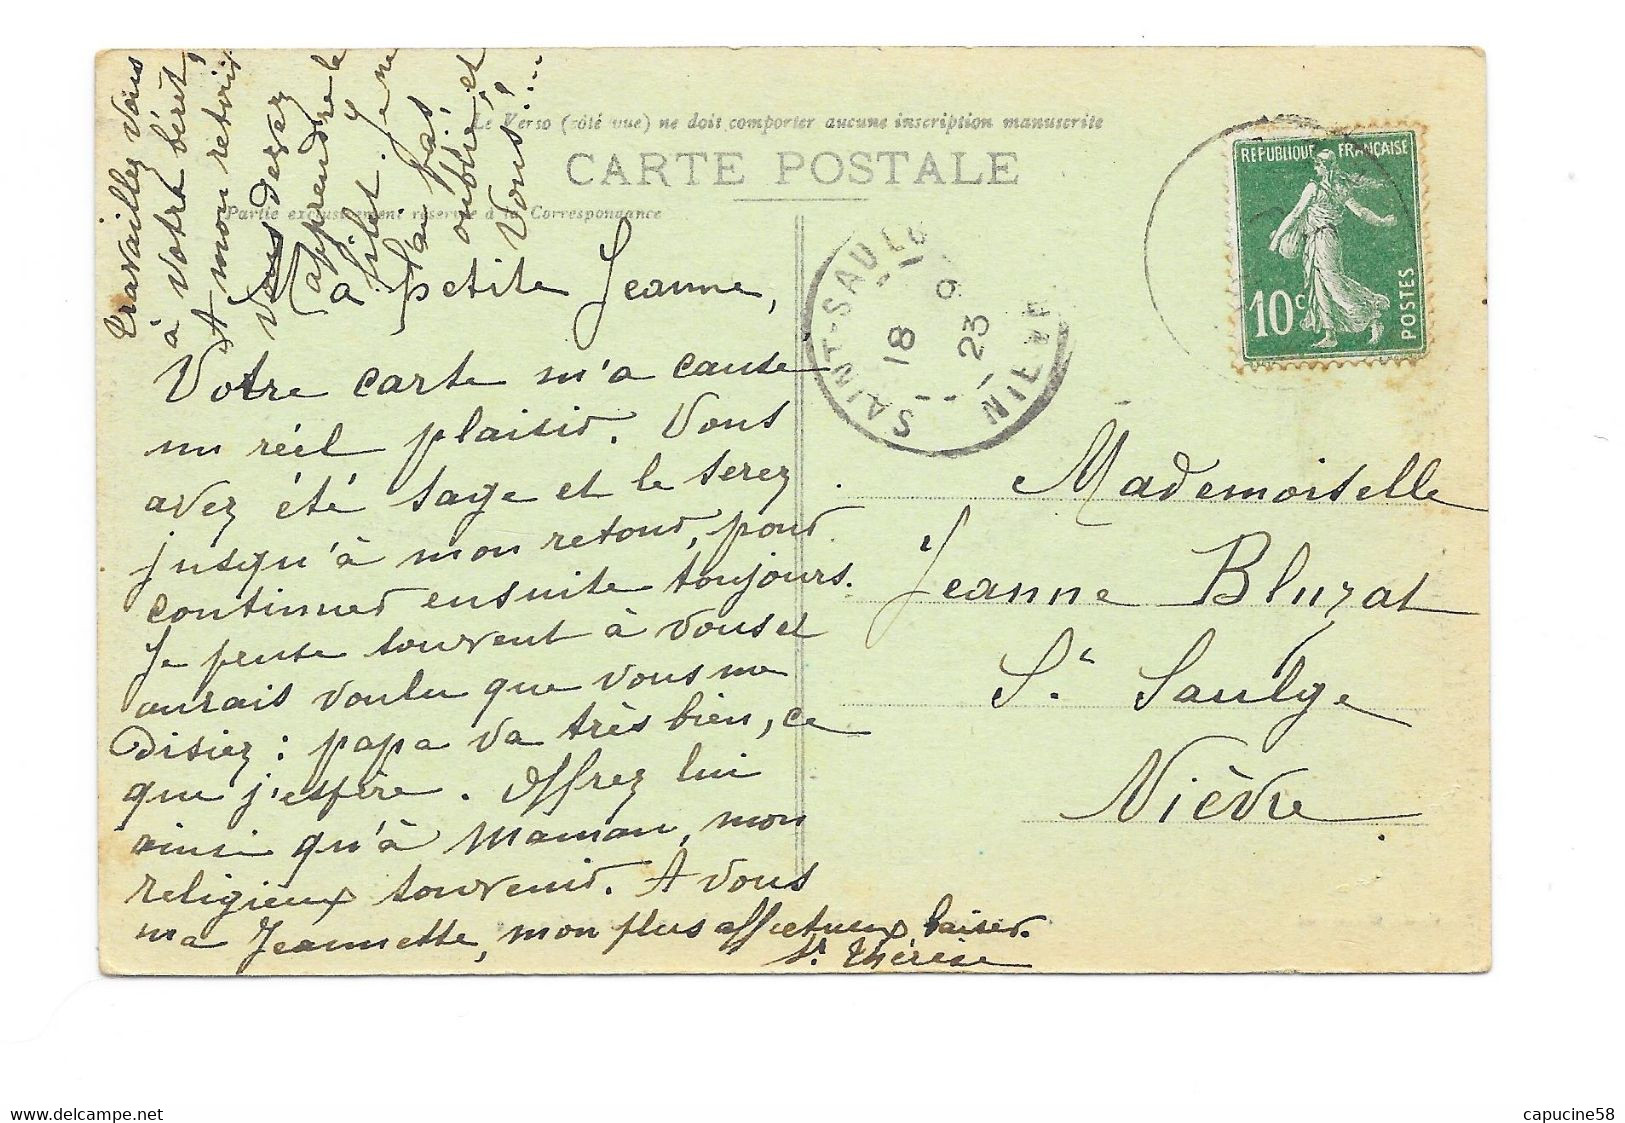 Le Verso (côté vue) ne doit comporter aucune inscription manuscrite
CARTE POSTALE
Partie exclusivement réservée à la Correspondance
RÉPUBLIQUE FRANÇAISE
10c
POSTES
SAINT-SAULGE
NIÈVRE
18 9
23
Ma petite Jeanne,
Votre carte m'a causé
un réel plaisir. Vous
avez été sage et le serez
jusqu'à mon retour, pour
continuer ensuite toujours.
Je pense souvent à vous et
aurais voulu que vous me
disiez : papa va très bien, ce
que j'espère. Offrez lui
ainsi qu'à Maman, mon
religieux souvenir. A vous
ma Jeannette, mon plus affectueux baiser.
Sr. Thérèse
Travaillez vous
à votre béret,
A mon retour
vous devez
apprendre le
filet. Je ne
l'ai pas
oublié, et
Vous!....
Mademoiselle
Jeanne Bluzat
St. Saulge
Nièvre
www.delcampe.net
capucine58